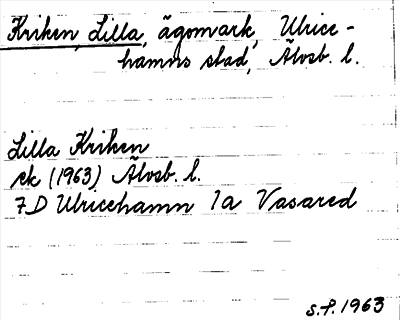 Kriken, Lilla, ägomark, Ulrice-
hamns stad, Älvsb. l.
Lilla Kriken
ek (1963) Älvsb. l.
7D Ulricehamn 1a Vasared
S.P. 1963